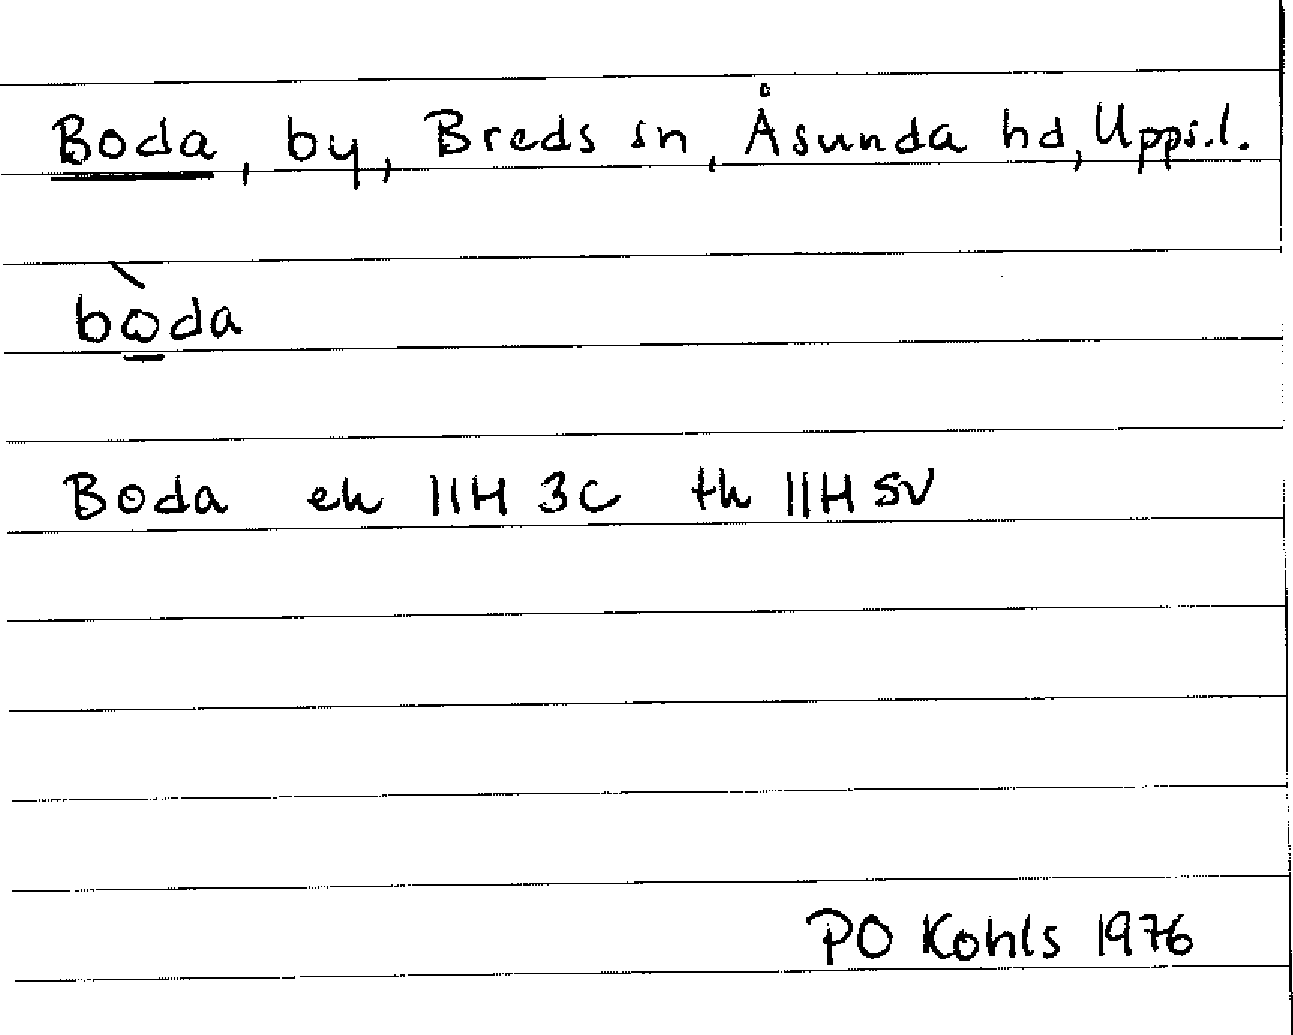 Boda, by, Breds sn, Åsunda hd, Upps.l.
bò̲da
Boda ek 11H 3c tk 11H SV
PO Kohls 1976